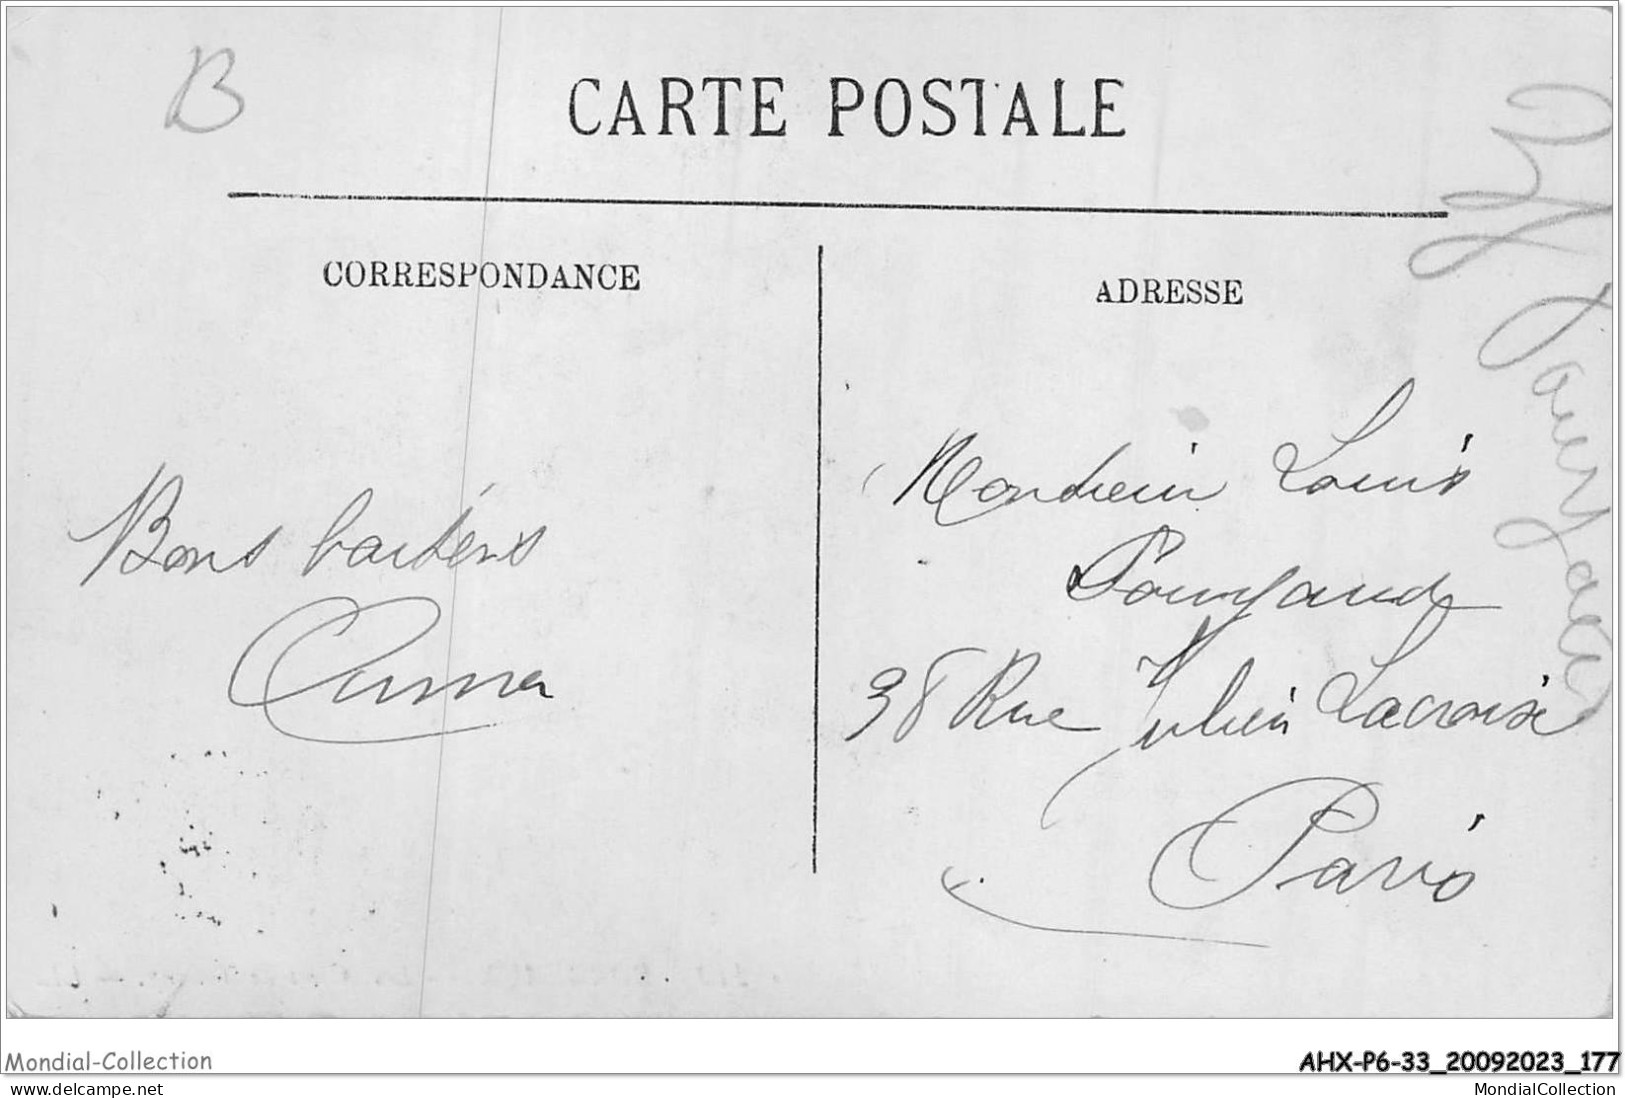 B
CARTE POSTALE
CORRESPONDANCE
ADRESSE
Bons baisers
Monsieur Louis
Pouygaud
38 Rue Julien Lacroix
Paris
Mondial-Collection
AHX-P6-33_20092023_177
www.delcampe.net
MondialCollection